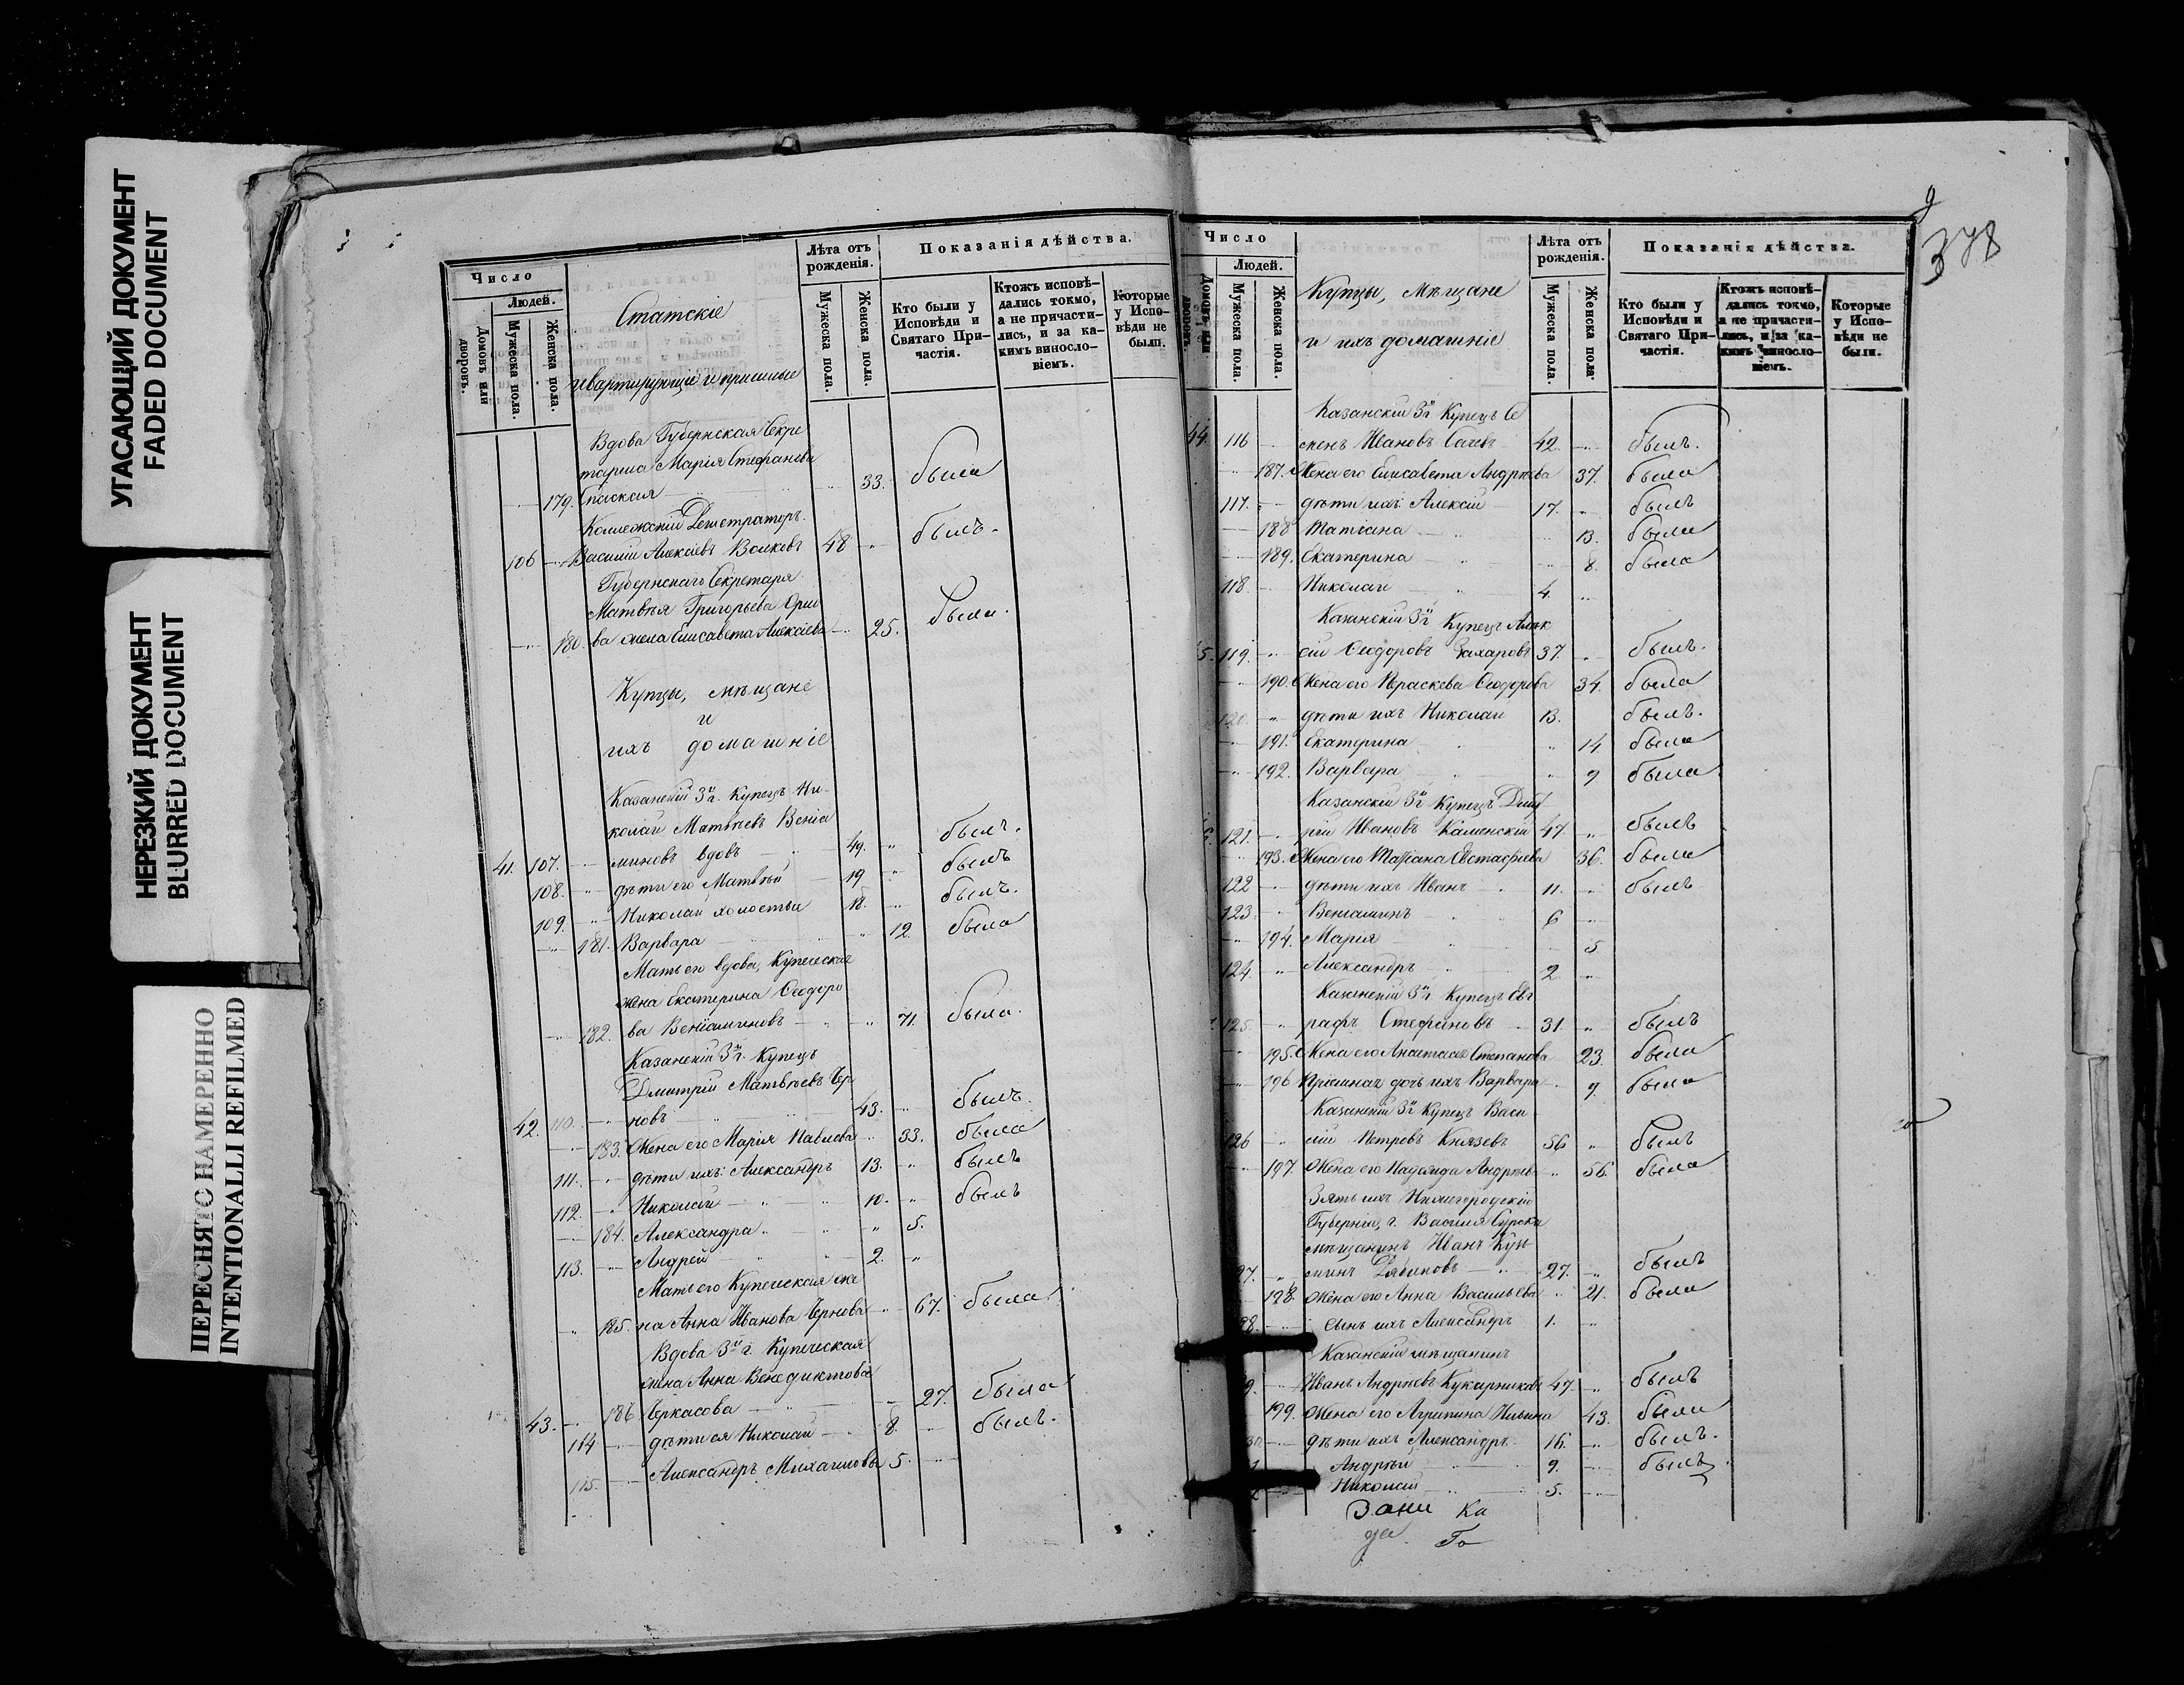 УГАСАЮЩИЙ ДОКУМЕНТ
FADED DOCUMENT
НЕРЕЗКИЙ ДОКУМЕНТ
BLURRED DOCUMENT
ПЕРЕСНЯТО НАМЕРЕННО
INTENTIONALLI REFILMED
Число
Людей.
Домовъ или дворовъ.
Мужеска пола.
Женска пола.
Статскіе
Лѣта отъ рожденія.
Мужеска пола.
Женска пола.
Показанія дѣйства.
Кто были у Исповѣди и Святаго Причастія.
Ктожъ исповѣдались токмо, а не причастились, и за какимъ винословіемъ.
Которые у Исповѣди не были.
Вдова Губернская Секре
тарша Марія Стефанова
179. Спаская 33. была
Коллежскій Регистраторъ
106 Василій Алексѣевъ Волковъ 48 былъ.
Губернскаго Секретаря
Матвѣя Григорьева
180. жена Елисавета Алексіева 25. была.
Купцы, мѣщане
и
ихъ домашніе
Казанскій 3й г. Купецъ Ни-
колай Матвѣевъ Веніа
41. 107. миновъ вдовъ 49. былъ.
108. дѣти его Матвѣй 19 былъ
109. Николай холостъ 18. былъ.
181. Варвара 12 была
Мать его вдова, Купеческая
жена Екатерина Ѳеодоро
182. ва Веніаминовъ 71. была.
Казанскій 3й г. Купецъ
Дмитрій Матвѣевъ Чер
42. 110. новъ 43. былъ.
183. Жена его Марія Павлова 33. была
111. дѣти ихъ: Александръ 13. былъ
112. Николай 10. былъ
184. Александра 5.
113. Андрей 2.
Мать его Купеческая же
185. на Анна Иванова Чернова 67. была
Вдова 3й г. Купеческая
жена Анна Венедиктова
43. 186 Черкасова 27. была
114 дѣти ея Николай 8. былъ.
115. Александръ Михайловы 5.
378
Число
Людей.
Домовъ или дворовъ.
Мужеска пола.
Женска пола.
Купцы, Мѣщане
и ихъ домашніе
Лѣта отъ рожденія.
Мужеска пола.
Женска пола.
Показанія дѣйства.
Кто были у Исповѣди и Святаго Причастія.
Ктожъ исповѣдались токмо, а не причастились, и за какимъ винословіемъ.
Которые у Исповѣди не были.
Казанскій 3й г Купецъ Се
44. 116 менъ Ивановъ 42. былъ.
187. Жена его Елисавета Андрѣева 37. была
117. дѣти ихъ: Алексѣй 17. былъ
188 Татіана 13. была
189. Екатерина 8. была
118. Николай 4.
Казанскій 3й г Купецъ Алек
5. 119. сій Ѳеодоровъ Захаровъ 37. былъ.
190. Жена его Параскева Ѳеодорова 34. была
120. дѣти ихъ Николай 13. былъ.
191. Екатерина 14 была
192. Варвара 9 была
Казанскій 3й г Купецъ Дмит
121. рій Ивановъ Каменскій 47. былъ
193. Жена его Татіана Евстафіева 36. была
122 дѣти ихъ Иванъ 11. былъ
123. Веніаминъ 6
194. Марія 5.
124. Александръ 2.
Казанскій 3й г Купецъ Ев
125. графъ Стефановъ 31. былъ
195. Жена его Анастасія Степанова 23 была
196 Пріемная дочь ихъ Варвара 9. была
Казанскій 3й г Купецъ Васи
126 лій Петровъ Князевъ 56 былъ
197. Жена его Надежда Андрѣева 56. была
Зять ихъ Нижегородской
Губерніи, г. Василя Сурска
мѣщанинъ Иванъ Кузь
27. минъ 27. былъ
198. Жена его Анна Васильева 21. была
28. сынъ ихъ Александръ 1.
Казанскій мѣщанинъ
9. Иванъ Андрѣевъ Кукарниковъ 47. былъ
199. Жена его Агрипина Ильина 43. была
30 дѣти ихъ Александръ 16. былъ.
1 Андрѣй 9. былъ
2 Николай 5.
Ка